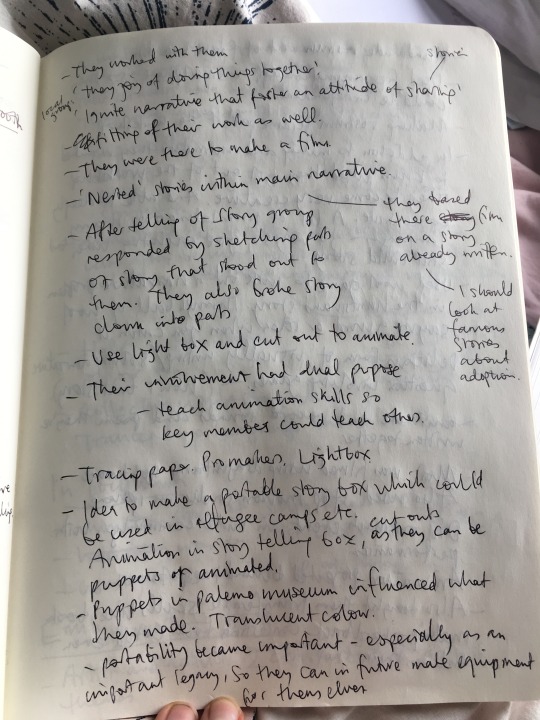 - They worked with them
stories
'they joy of doing things together'
local
'Ignite narrative that foster an attitude of sharing'
- of their work as well.
- They were there to make a film.
- 'Nested' stories within main narrative.
they based
these film
on a story
already written.
I should
look at
famous
stories
about
adoption.
- After telling of story group
responded by sketching parts
of story that stood out to
them. They also broke story
down into parts
- Use light box and cut out to animate.
- Their involvement had dual pupose
- teach animation skills so
key member could teach others.
- Tracing paper. Promakers, Lightbox
- Idea to make a portable story box which could
be used in refugee camps etc.
Animation in story telling box, cut outs as they can be
puppets or animated.
- Puppets in palemo museum influenced what
they made. Translucent colour.
- portability became important - especially as an
important legacy, so they can in future make equipment
for themselves